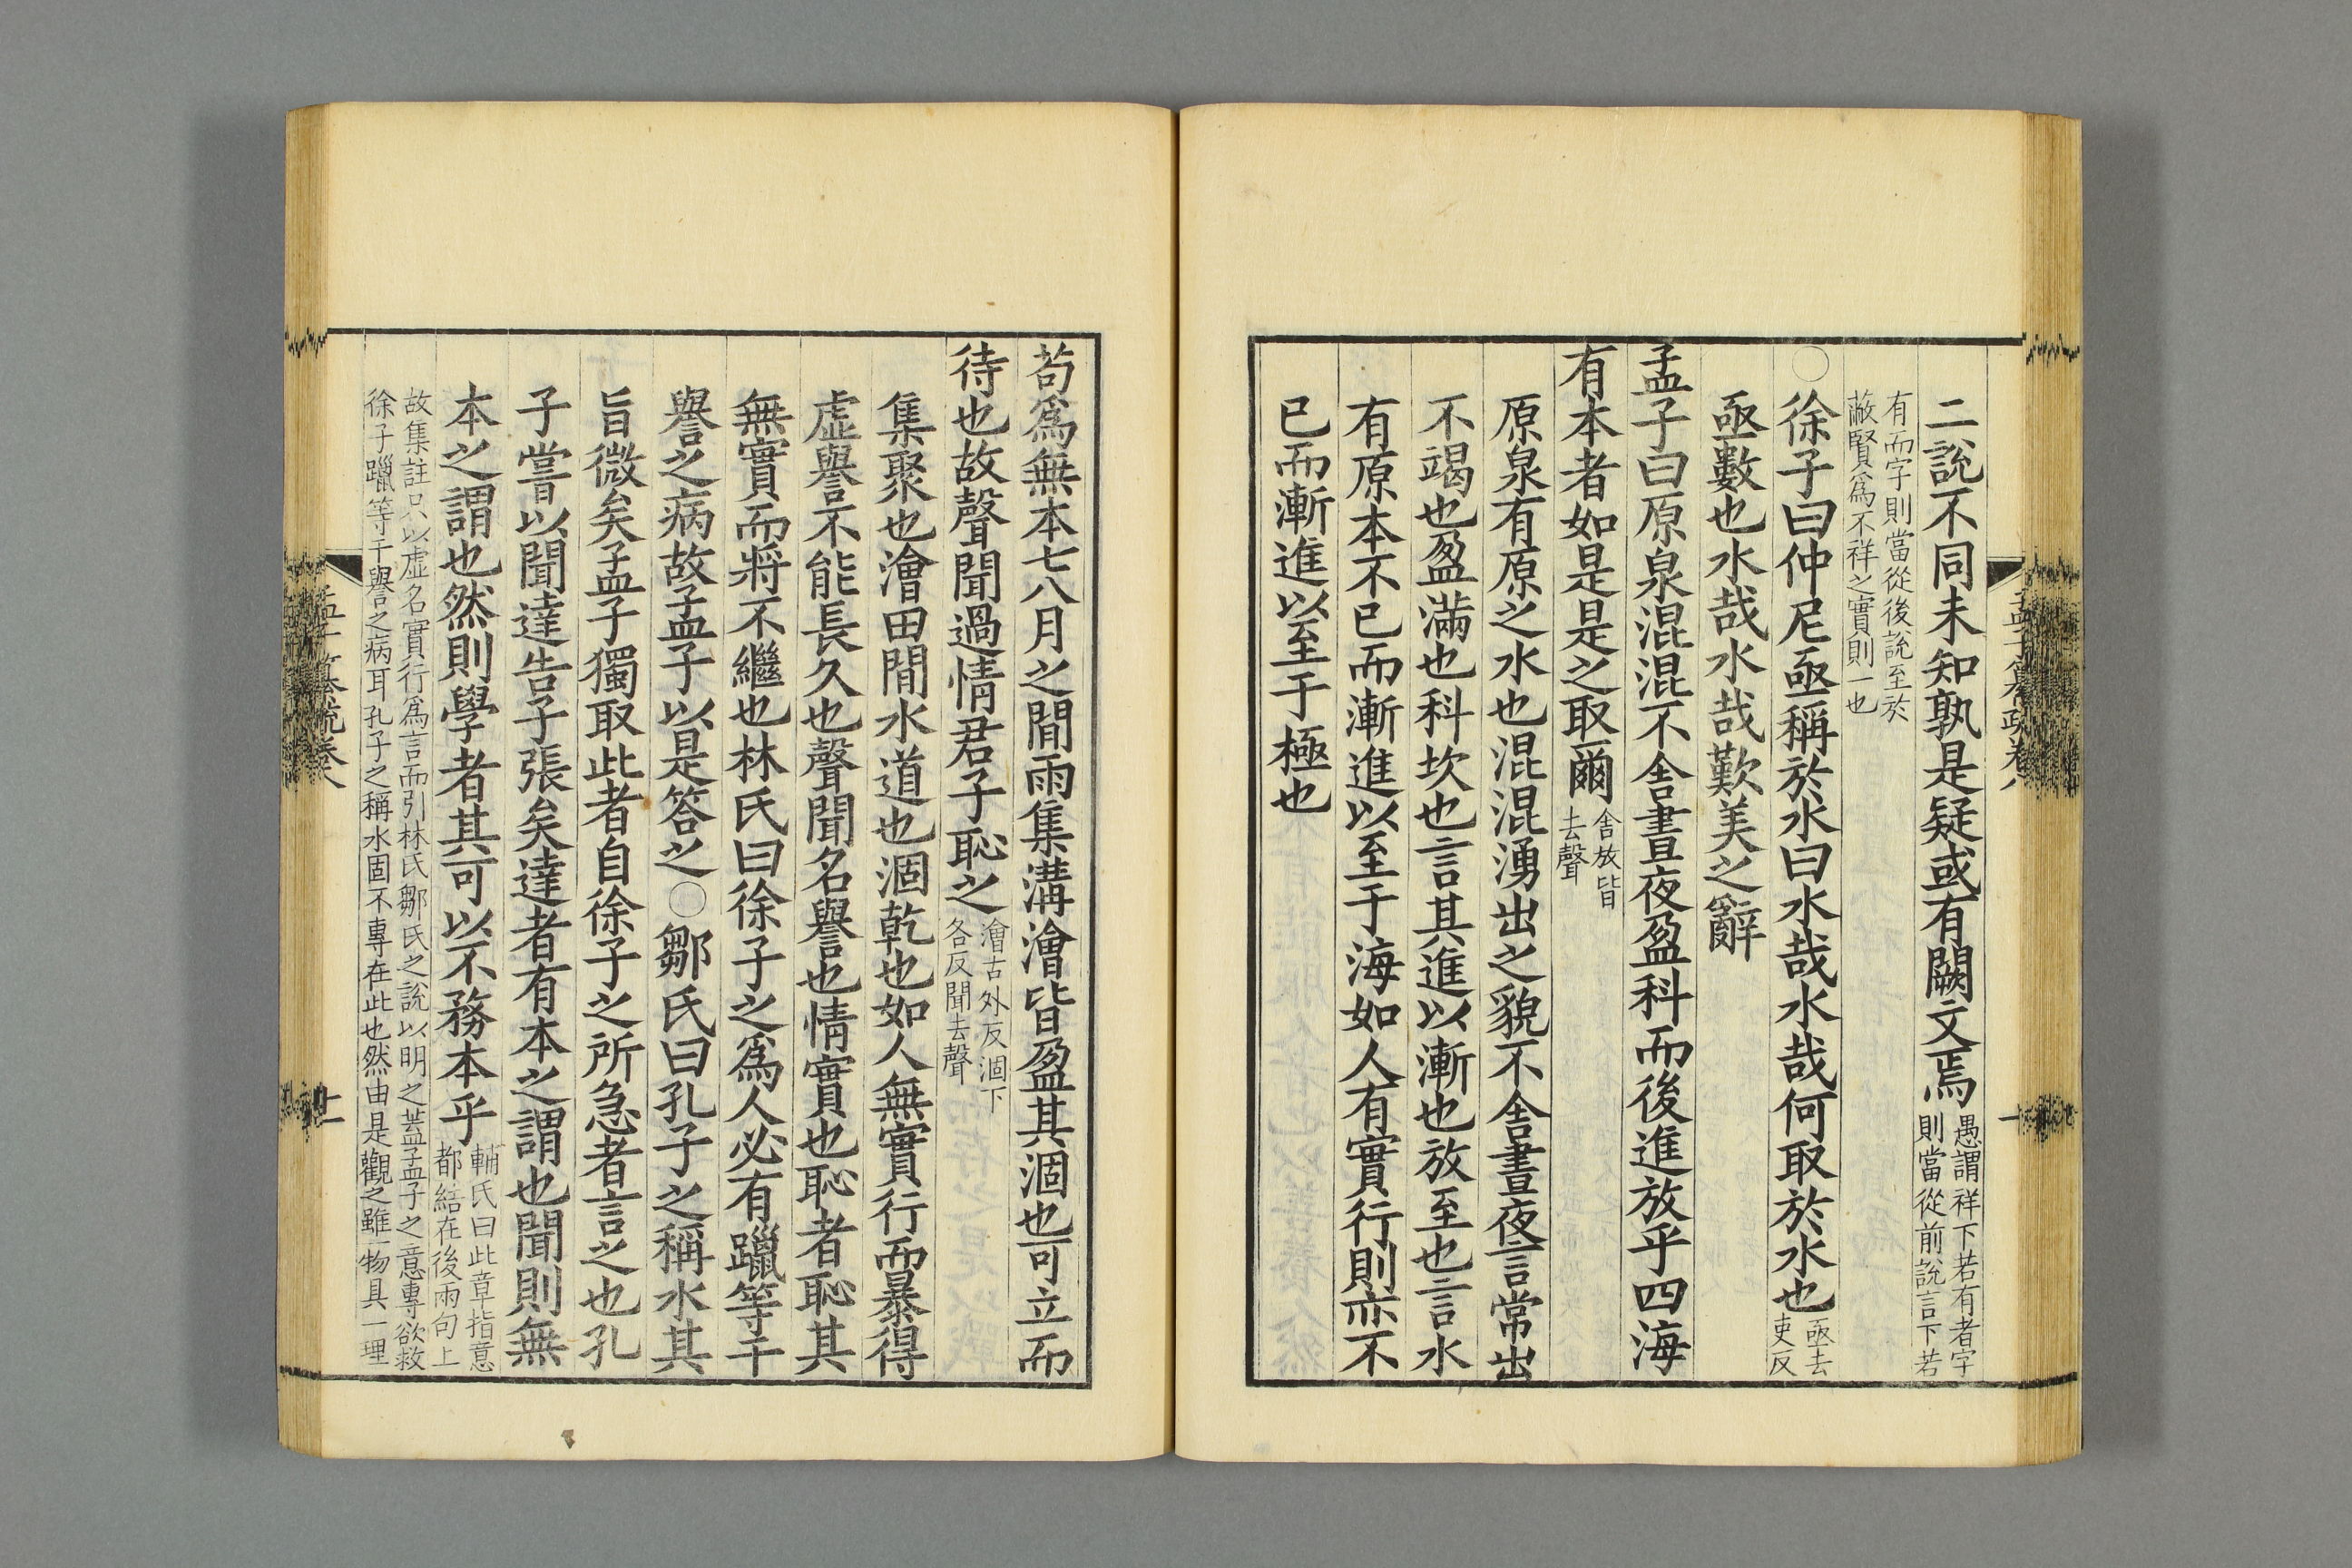 二說不同未知孰是疑或有闕文焉愚謂祥下若有者字
則當從前說言下若
有而字則當從後說至於
蔽賢爲不祥之實則一也
○徐子曰仲尼亟稱於水曰水哉水哉何取於水也亟去
吏反
亟數也水哉水哉歎美之辭
孟子曰原泉混混不舍晝夜盈科而後進放乎四海
有本者如是是之取爾舍放皆
去聲
原泉有原之水也混混湧出之貌不舍晝夜言常出
不竭也盈滿也科坎也言其進以漸也放至也言水
有原本不已而漸進以至于海如人有實行則亦不
已而漸進以至于極也
苟爲無本七八月之閒雨集溝澮皆盈其涸也可立而
待也故聲聞過情君子恥之澮古外反涸下
各反聞去聲
集聚也澮田閒水道也涸乾也如人無實行而暴得
虛譽不能長久也聲聞名譽也情實也恥者恥其
無實而將不繼也林氏曰徐子之爲人必有躐等干
譽之病故孟子以是答之○鄒氏曰孔子之稱水其
旨微矣孟子獨取此者自徐子之所急者言之也孔
子嘗以聞達告子張矣達者有本之謂也聞則無
本之謂也然則學者其可以不務本乎輔氏曰此章指意
都結在後兩句上
故集註只以虛名實行爲言而引林氏鄒氏之說以明之葢孟子之意專欲救
徐子躐等干譽之病耳孔子之稱水固不專在此也然由是觀之雖一物具一理